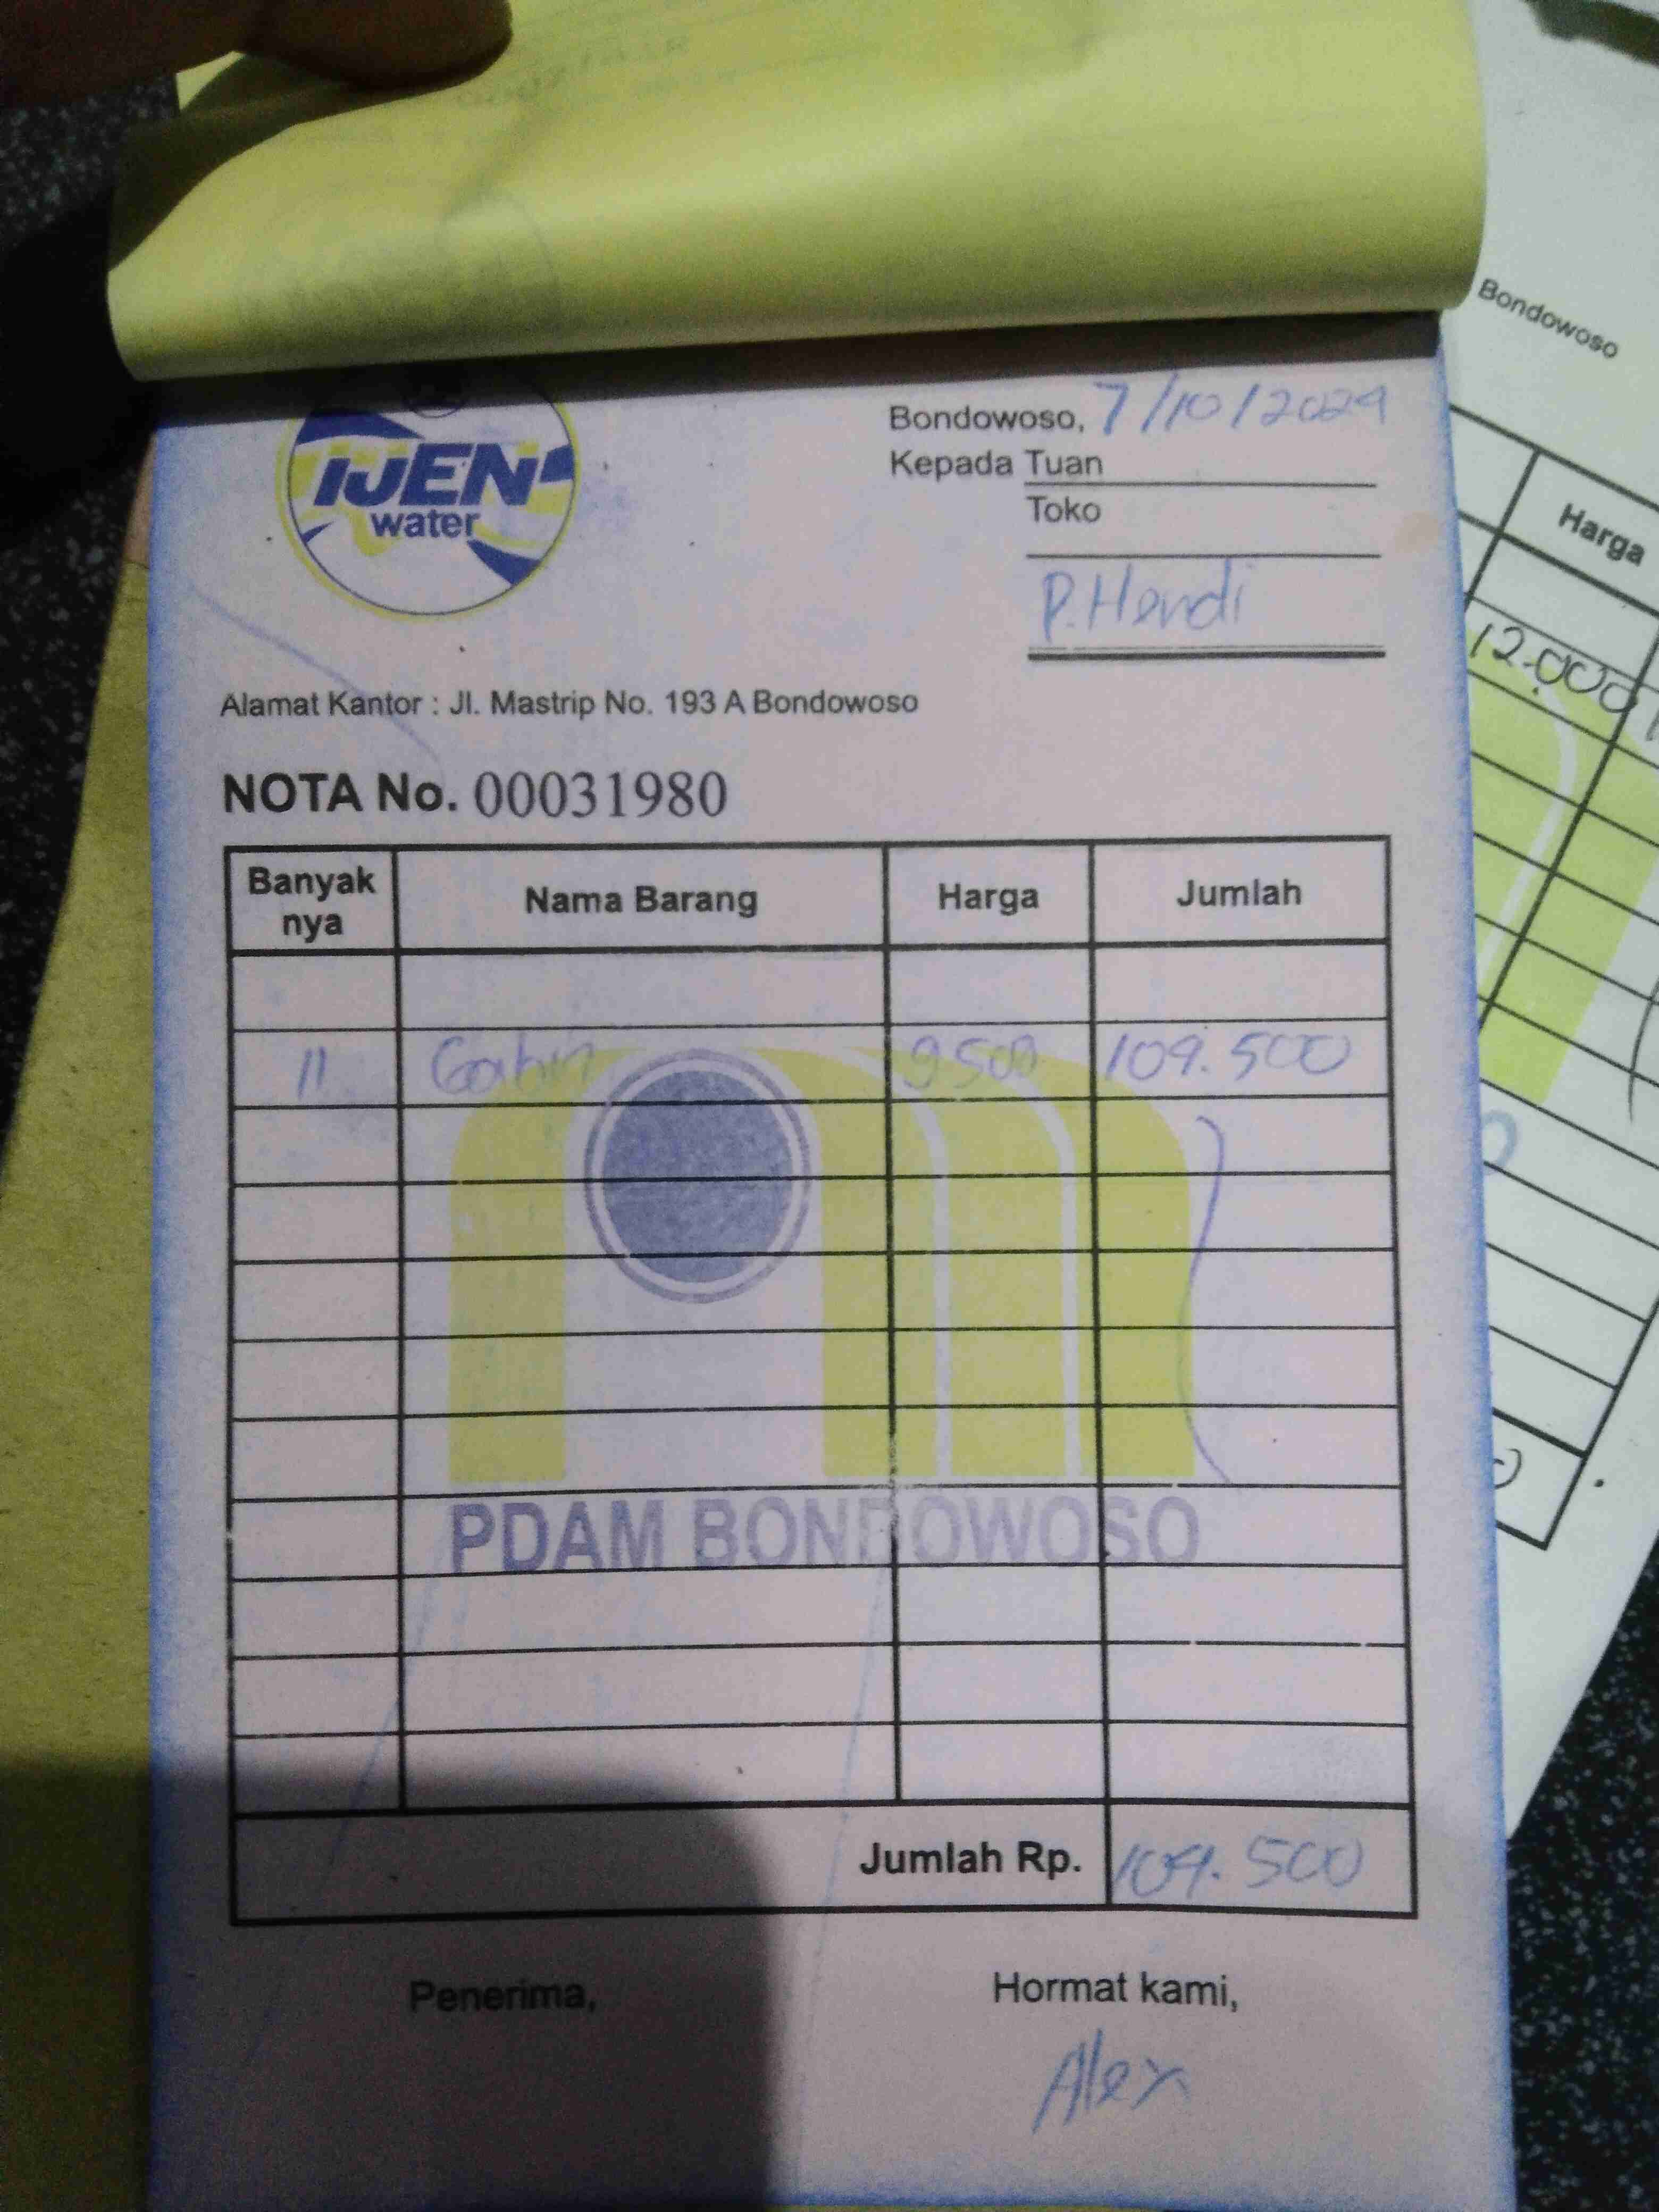 IJEN
water
Bondowoso, 7/10/2024
Kepada Tuan
Toko
P. Hendi
Alamat Kantor : Jl. Mastrip No. 193 A Bondowoso
NOTA No. 00031980
Banyak nya Nama Barang Harga Jumlah
11 Galon 9.500 109.500
PDAM BONDOWOSO
Jumlah Rp. 109.500
Penerima, Hormat kami,
Alex
Bondowoso
Harga
12.000